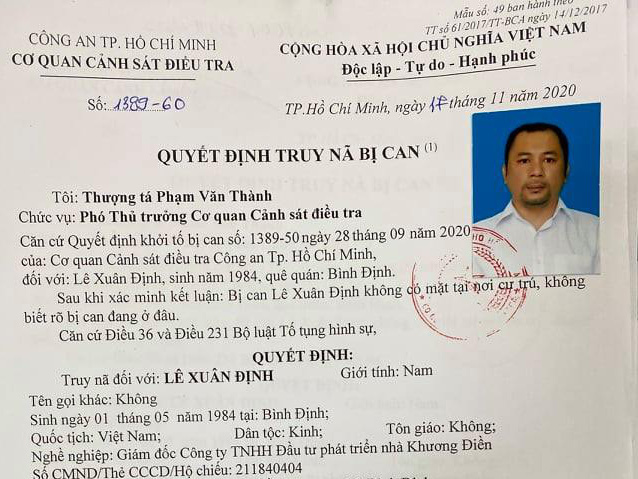 Mẫu số: 49 ban hành theo
TT số 61/2017/TT-BCA ngày 14/12/2017
CÔNG AN TP. HỒ CHÍ MINH
CƠ QUAN CẢNH SÁT ĐIỀU TRA
CỘNG HÒA XÃ HỘI CHỦ NGHĨA VIỆT NAM
Độc lập - Tự do - Hạnh phúc
Số: 1389-60
TP.Hồ Chí Minh, ngày tháng 11 năm 2020
QUYẾT ĐỊNH TRUY NÃ BỊ CAN (1)
Tôi: Thượng tá Phạm Văn Thành
Chức vụ: Phó Thủ trưởng Cơ quan Cảnh sát điều tra
Căn cứ Quyết định khởi tố bị can số: 1389-50 ngày 28 tháng 09 năm 2020
của: Cơ quan Cảnh sát điều tra Công an Tp. Hồ Chí Minh,
đối với: Lê Xuân Định, sinh năm 1984, quê quán: Bình Định.
Sau khi xác minh kết luận: Bị can Lê Xuân Định không có mặt tại nơi cư trú, không
biết rõ bị can đang ở đâu.
Căn cứ Điều 36 và Điều 231 Bộ luật Tố tụng hình sự,
QUYẾT ĐỊNH:
Truy nã đối với: LÊ XUÂN ĐỊNH Giới tính: Nam
Tên gọi khác: Không
Sinh ngày 01 tháng 05 năm 1984 tại: Bình Định;
Quốc tịch: Việt Nam; Dân tộc: Kinh; Tôn giáo: Không;
Nghề nghiệp: Giám đốc Công ty TNHH Đầu tư phát triển nhà Khương Điền
Số CMND/Thẻ CCCD/Hộ chiếu: 211840404